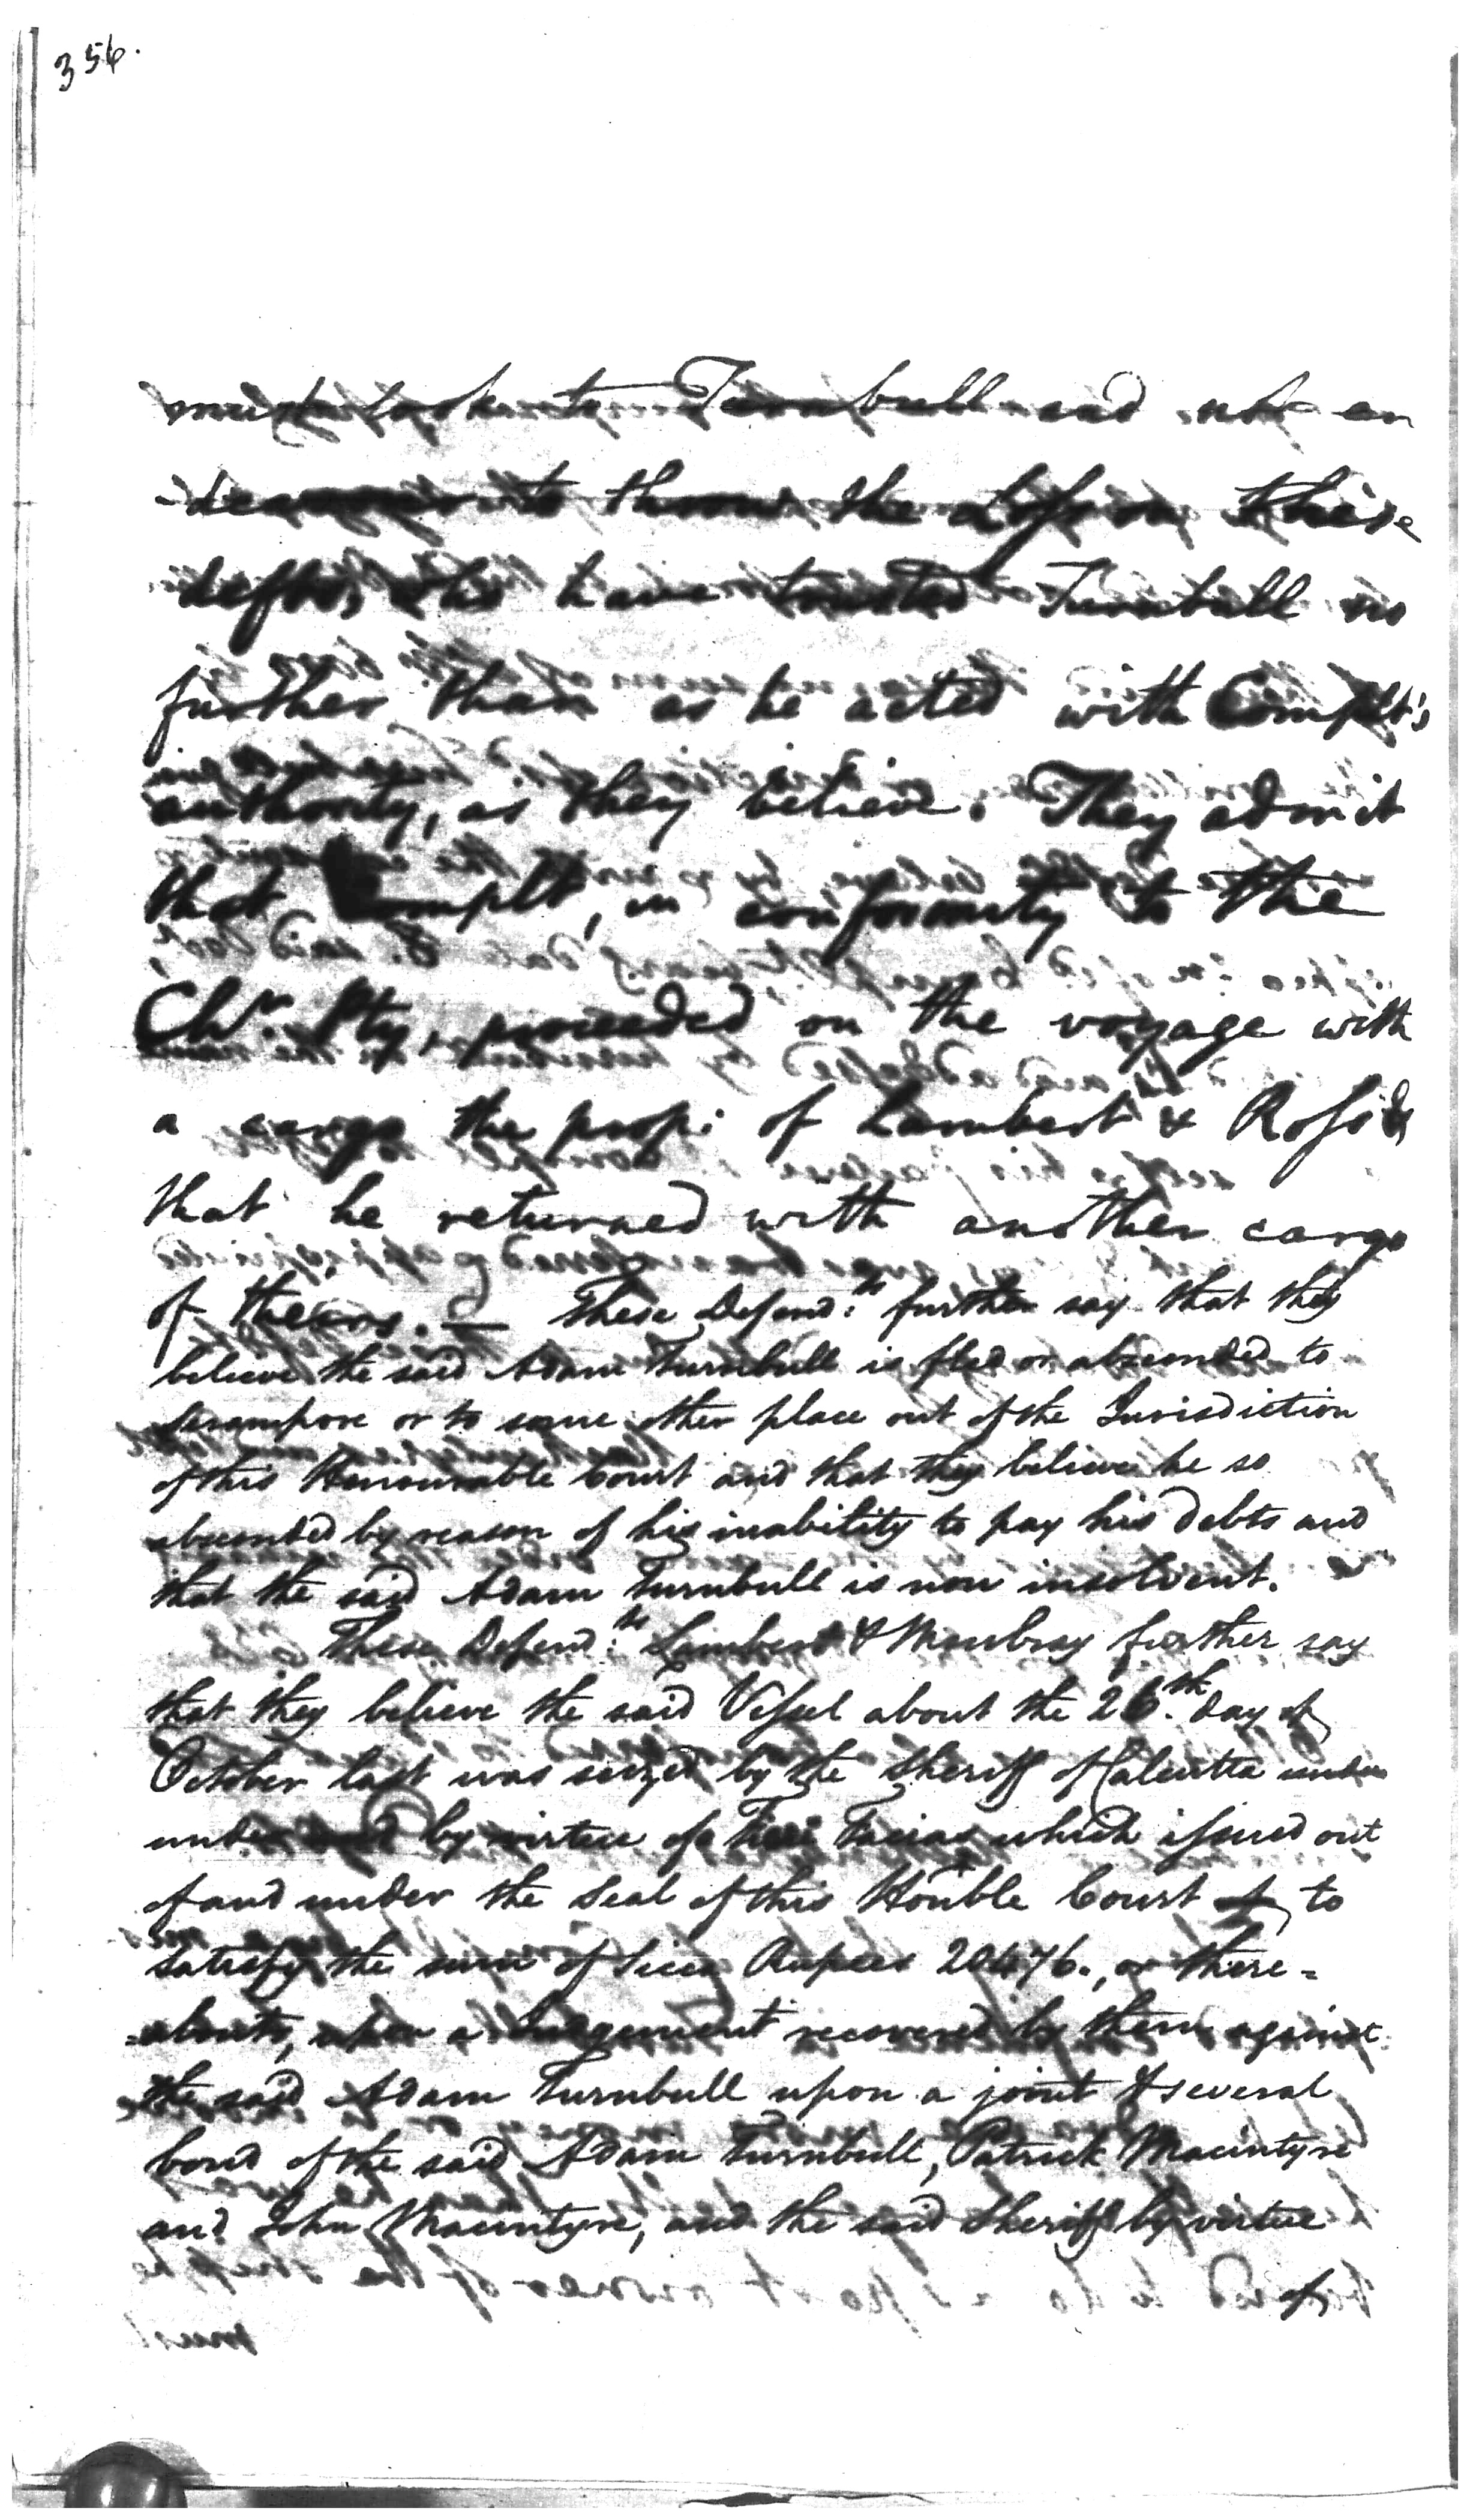 356.
must look to Turnbull and not en
-deavour to throw the Loss on these
defts, who have trusted Turnbull no
further than as he acted with Complt's
authority, as they believe. They admit
that Complt, in conformity to the
Chr. Pty, proceeded on the voyage with
a cargo the prop: of Lambert & Ross &
that he returned with another cargo
of theirs. — These Defend:ts further say that they
believe the said Adam Turnbull is fled or absconded to
Serampore or to some other place out of the Jurisdiction
of this Honourable Court and that they believe he so
absconded by reason of his inability to pay his debts and
that the said Adam Turnbull is now insolvent.
These Defend:ts Lambert & Moubray further say
that they believe the said Vessel about the 26.th day of
October last was seized by the Sheriff of Calcutta under
under and by virtue of a Fieri Facias which issued out
of and under the Seal of this Honble Court of to
satisfy the sum of Sicca Rupees 20476., or there=
=abouts, upon a Judgement recovered by them against
the said Adam Turnbull upon a joint & several
bond of the said Adam Turnbull, Patrick Macintyre
and John Macintyre, and the said Sheriff by virtue
of